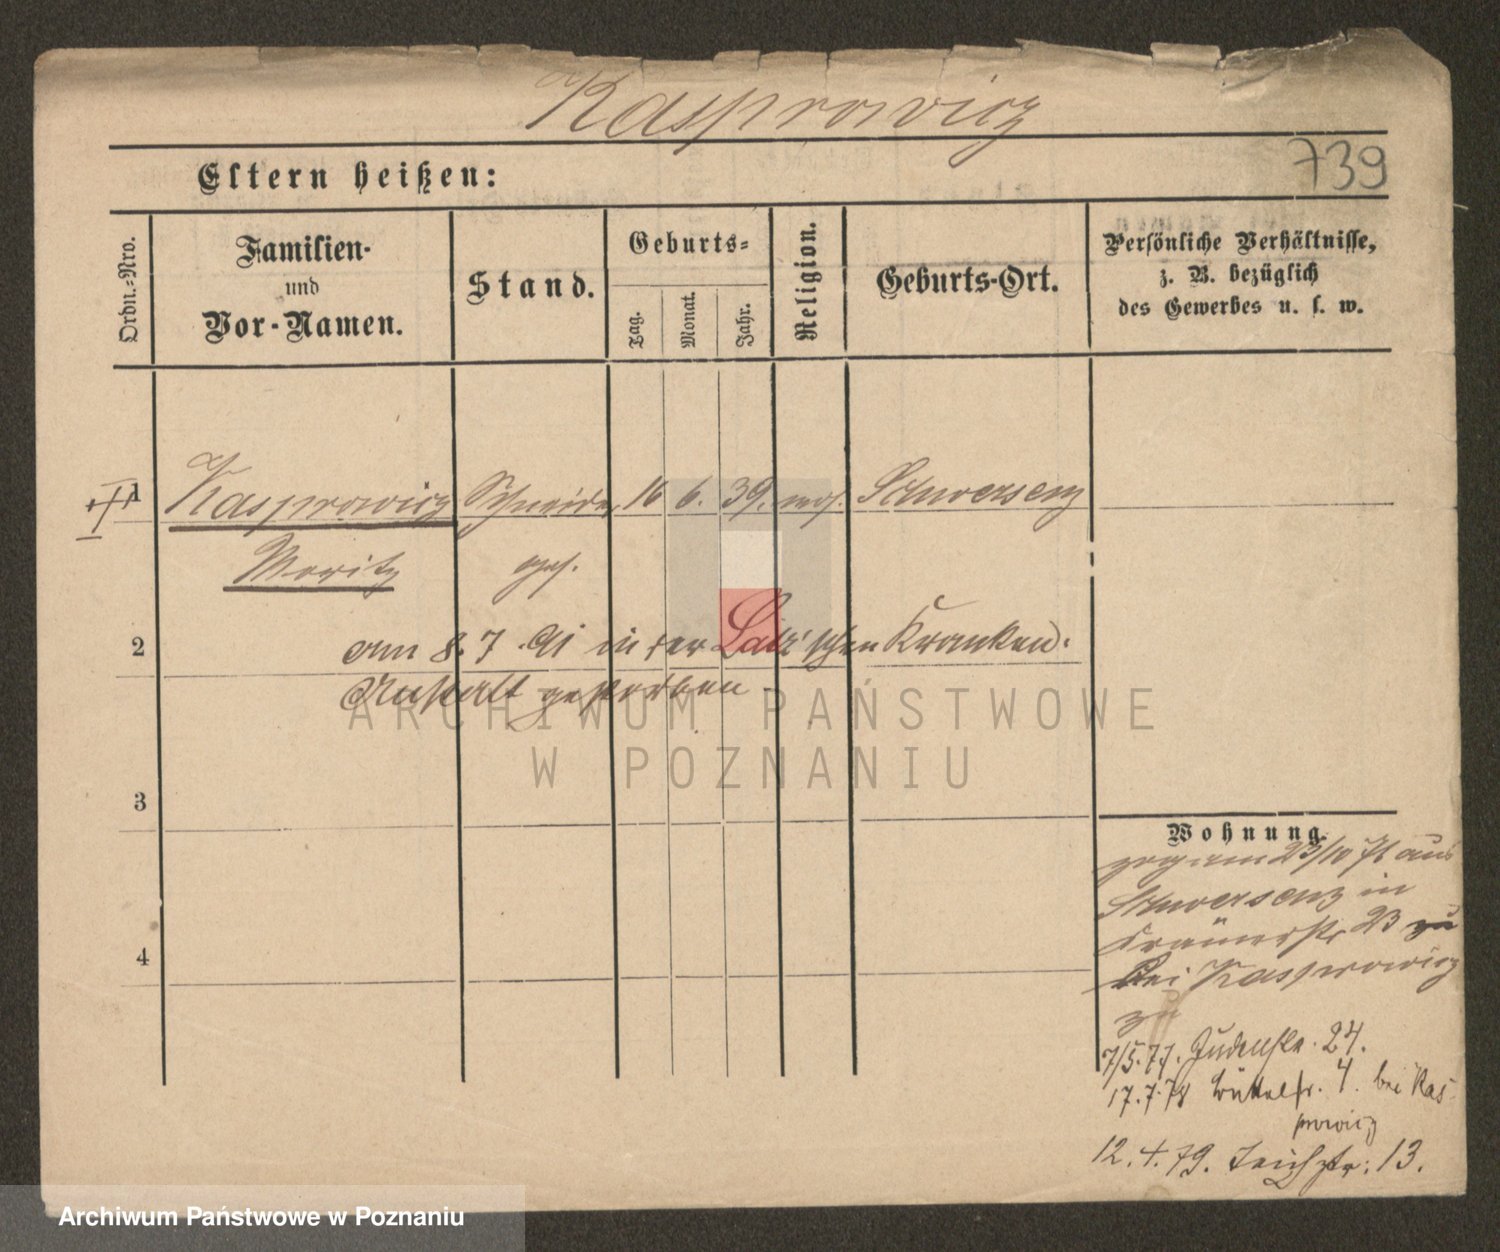 Kasprowicz
739
Eltern heißen:
Ordn.-Nro.
Familien-
und
Vor-Namen.
Stand.
Geburts-
Tag.
Monat.
Jahr.
Religion.
Geburts-Ort.
Persönliche Verhältnisse,
z. B. bezüglich
des Gewerbes u. s. w.
1 Kasprowicz Schneider 16 6. 39. mos. Schwersenz
Moritz
2
am 8. 7. 91 in der Latz'schen Kranken-
Anstalt gestorben
ARCHIWUM PAŃSTWOWE
W POZNANIU
3
4
Wohnung.
zog am 23/10 71 aus
Schwersenz in
Krämerstr 23 zu
bei Kasprowicz
zu
7/5.77. Judenstr. 24.
17.7.78 Büttelstr. 4. bei Kas-
prowicz
12.4.79. Teichstr: 13.
Archiwum Państwowe w Poznaniu